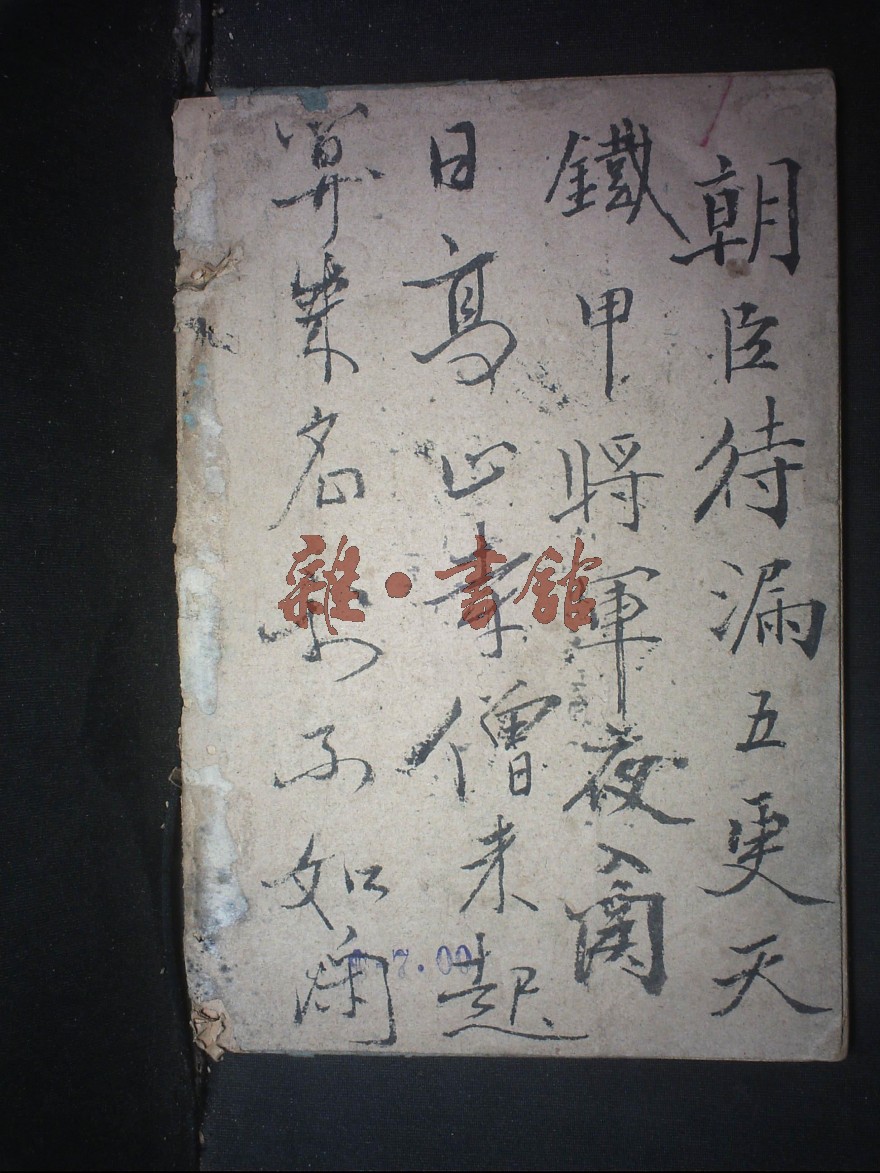 朝臣待漏五更天
鐵甲將軍夜入関
日高山寺僧未起
算來名利不如閑
雜·書館
7.00